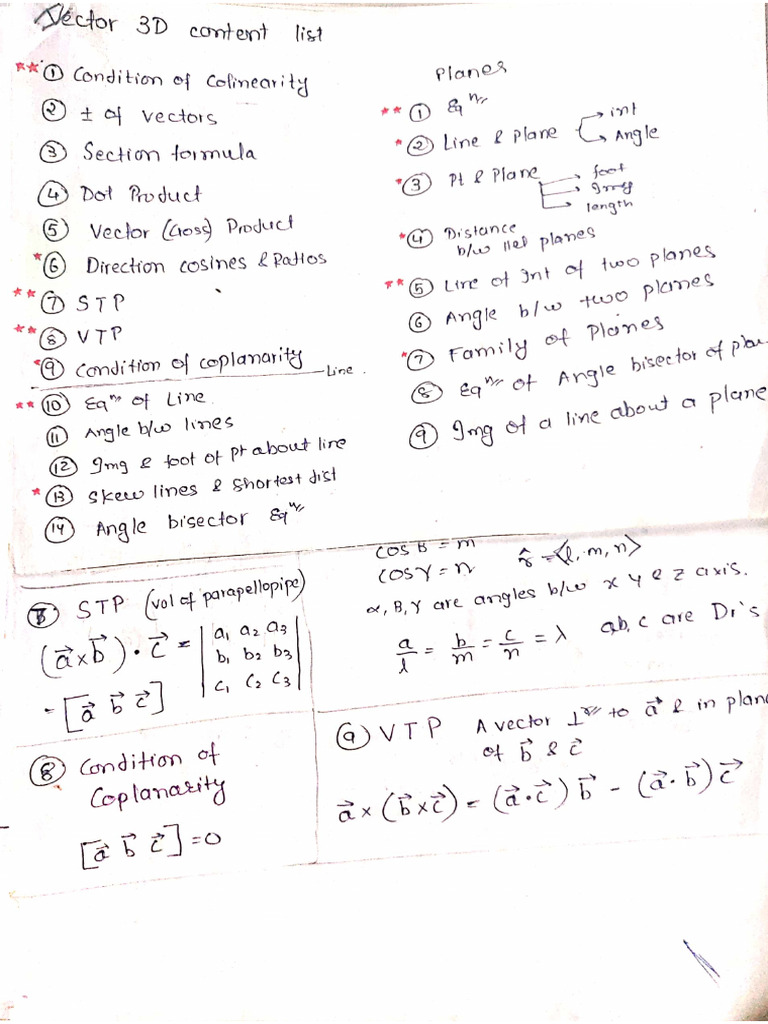 Vector 3D content list
** ① Condition of Colinearity
② ± of vectors
③ Section formula
④ Dot Product
⑤ Vector (Cross) Product
* ⑥ Direction cosines & Ratios
** ⑦ STP
** ⑧ VTP
* ⑨ Condition of coplanarity
Line
** ⑩ Eqⁿ of Line
⑪ Angle b/w lines
⑫ Img & foot of pt about line
* ⑬ Skew lines & shortest dist
⑭ Angle bisector Eqⁿ
Planes
** ① Eqⁿ
* ② Line & Plane → int
→ Angle
* ③ Pt & Plane → foot
→ Img
→ length
* ④ Distance
b/w llel planes
** ⑤ Line of Int of two planes
⑥ Angle b/w two planes
* ⑦ Family of Planes
⑧ Eqⁿ of Angle bisector of plan
⑨ Img of a line about a plane
STP (vol of parapellopipe)
(a⃗×b⃗)·c⃗ = | a₁ a₂ a₃
b₁ b₂ b₃
c₁ c₂ c₃ |
= [a⃗ b⃗ c⃗]
⑧ Condition of
Coplanarity
[a⃗ b⃗ c⃗] = 0
cos B = m
cos γ = n r̂ = <l, m, n>
α, B, γ are angles b/w x y & z axis.
a/l = b/m = c/n = λ a,b,c are Dr's
⑨ VTP A vector ⊥ʳ to a⃗ & in plane
of b⃗ & c⃗
a⃗ × (b⃗×c⃗) = (a⃗·c⃗) b⃗ - (a⃗·b⃗) c⃗